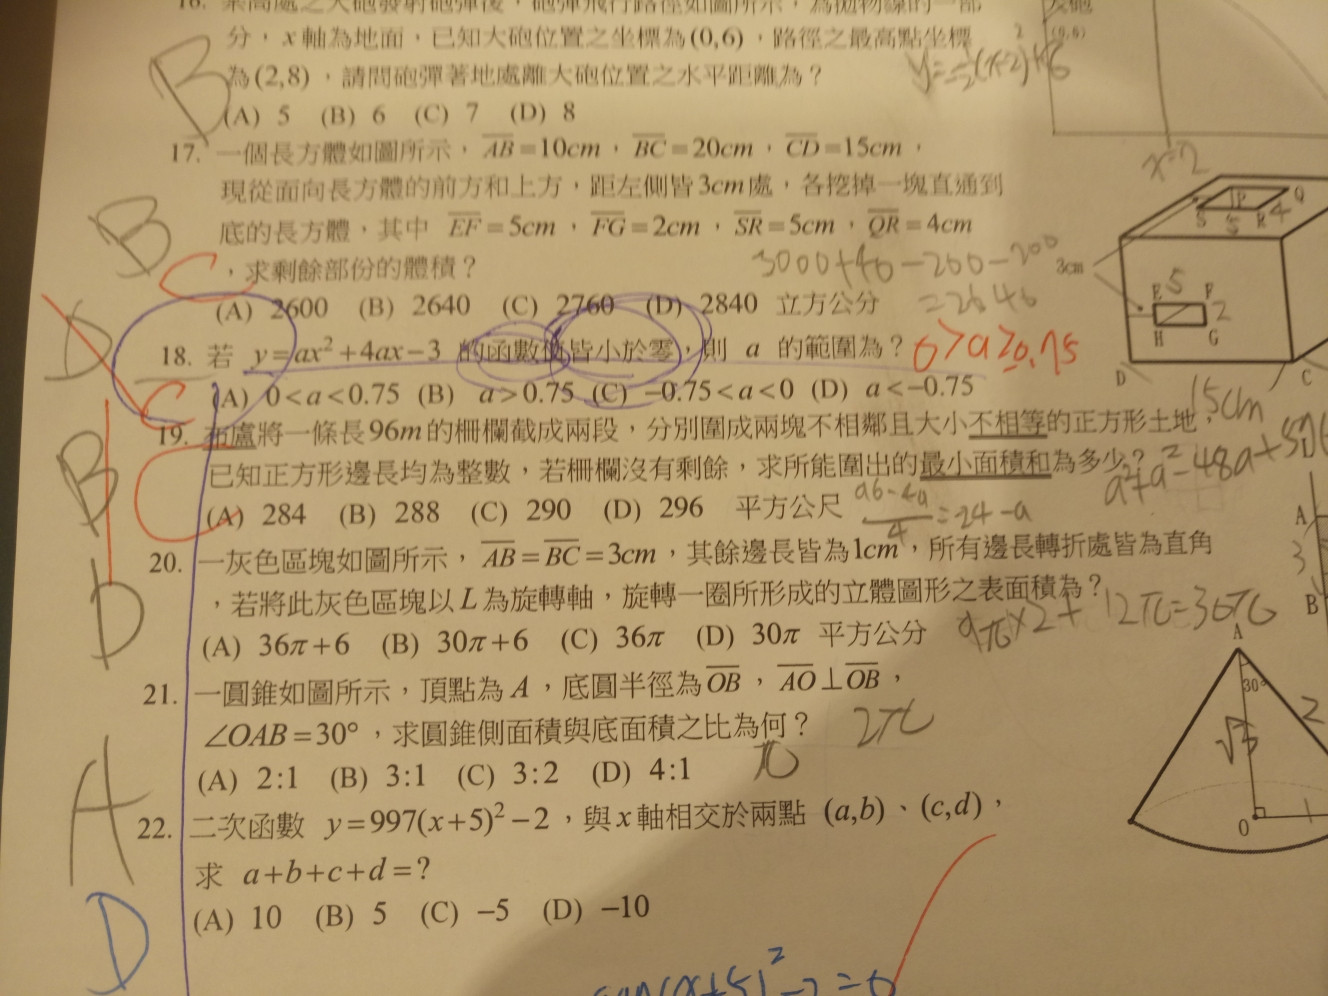 16. 某高處之大砲發射砲彈後，砲彈飛行路徑如圖所示，為拋物線的一部
分，x 軸為地面，已知大砲位置之坐標為(0,6)，路徑之最高點坐標
為(2,8)，請問砲彈著地處離大砲位置之水平距離為？
(A) 5 (B) 6 (C) 7 (D) 8
B
(0,6)
x=2
17. 一個長方體如圖所示，AB=10cm，BC=20cm，CD=15cm，
現從面向長方體的前方和上方，距左側皆3cm處，各挖掉一塊直通到
底的長方體，其中 EF=5cm，FG=2cm，SR=5cm，QR=4cm
，求剩餘部份的體積？
(A) 2600 (B) 2640 (C) 2760 (D) 2840 立方公分
B
C
3000+40-200-200
=2640
P Q
S 5 R 4
3cm
E 5 F
2
H G
D C
15cm
18. 若 y=ax²+4ax-3 的函數值皆小於零，則 a 的範圍為？
(A) 0<a<0.75 (B) a>0.75 (C) -0.75<a<0 (D) a<-0.75
D
C
19. 布盧將一條長96m的柵欄截成兩段，分別圍成兩塊不相鄰且大小不相等的正方形土地，
已知正方形邊長均為整數，若柵欄沒有剩餘，求所能圍出的最小面積和為多少？
(A) 284 (B) 288 (C) 290 (D) 296 平方公尺
B
C
96-4a
4
=24-a
20. 一灰色區塊如圖所示，AB=BC=3cm，其餘邊長皆為1cm，所有邊長轉折處皆為直角
，若將此灰色區塊以L為旋轉軸，旋轉一圈所形成的立體圖形之表面積為？
(A) 36π+6 (B) 30π+6 (C) 36π (D) 30π 平方公分
D
9π×2+12π=30π
A
3
B
21. 一圓錐如圖所示，頂點為 A，底圓半徑為OB，AO⊥OB，
∠OAB=30°，求圓錐側面積與底面積之比為何？
(A) 2:1 (B) 3:1 (C) 3:2 (D) 4:1
A
2π
π
A
30°
2
√3
O
1
22. 二次函數 y=997(x+5)²-2，與x軸相交於兩點 (a,b)、(c,d)，
求 a+b+c+d=?
(A) 10 (B) 5 (C) -5 (D) -10
D